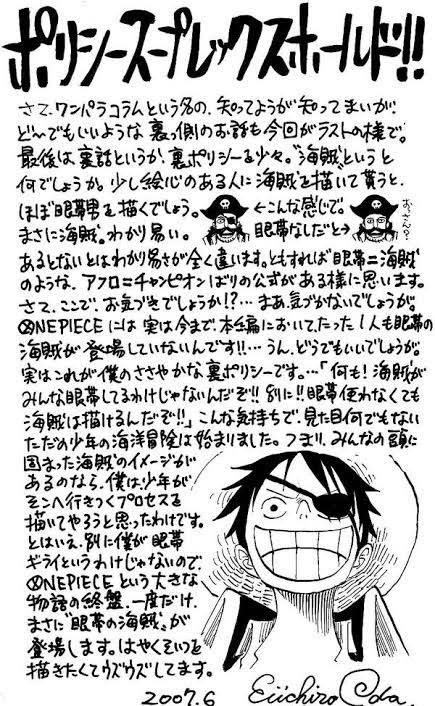 ポリシースープレックスホールド!!
さて、ワンパラコラムという名の、知ってようが知ってまいが、
ど〜でもいいような裏っ側のお話も今回がラストの様で。
最後は裏話というか、裏ポリシーを少々。“海賊”というと
何でしょうか。少し絵心のある人に海賊を描いて貰うと、
ほぼ眼帯男を描くでしょう。
←こんな感じで。
おっさん?
まさに海賊。わかり易い。
眼帯なしだと→
あるとないとはわかり易さが全く違います。ともすれば眼帯=海賊
のような、アフロ=チャンピオンばりの公式がある様に思います。
さて、ここで、お気づきでしょうか!?…まあ気づかないでしょうが。
ONEPIECEには実は今まで、本編において、たった1人も眼帯の
海賊が登場していないんです!!…うん、どうでもいいでしょうが。
実はこれが僕のささやかな裏ポリシーです。…「何も!海賊が
みんな眼帯してるわけじゃないんだぞ!!別に!!眼帯使わなくても
海賊は描けるんだぞ!!」こんな気持ちで、見た目何でもない
ただの少年の海洋冒険は始まりました。つまり、みんなの頭に
固まった海賊のイメージが
あるのなら、僕は少年が
そこへ行きつくプロセスを
描いてやろうと思ったわけです。
とはいえ、別に僕が眼帯
ギライというわけじゃないので、
ONEPIECEという大きな
物語の終盤、一度だけ、
まさに“眼帯の海賊”が
登場します。はやくそいつを
描きたくてウズウズしてます。
2007.6
Eiichiro Oda